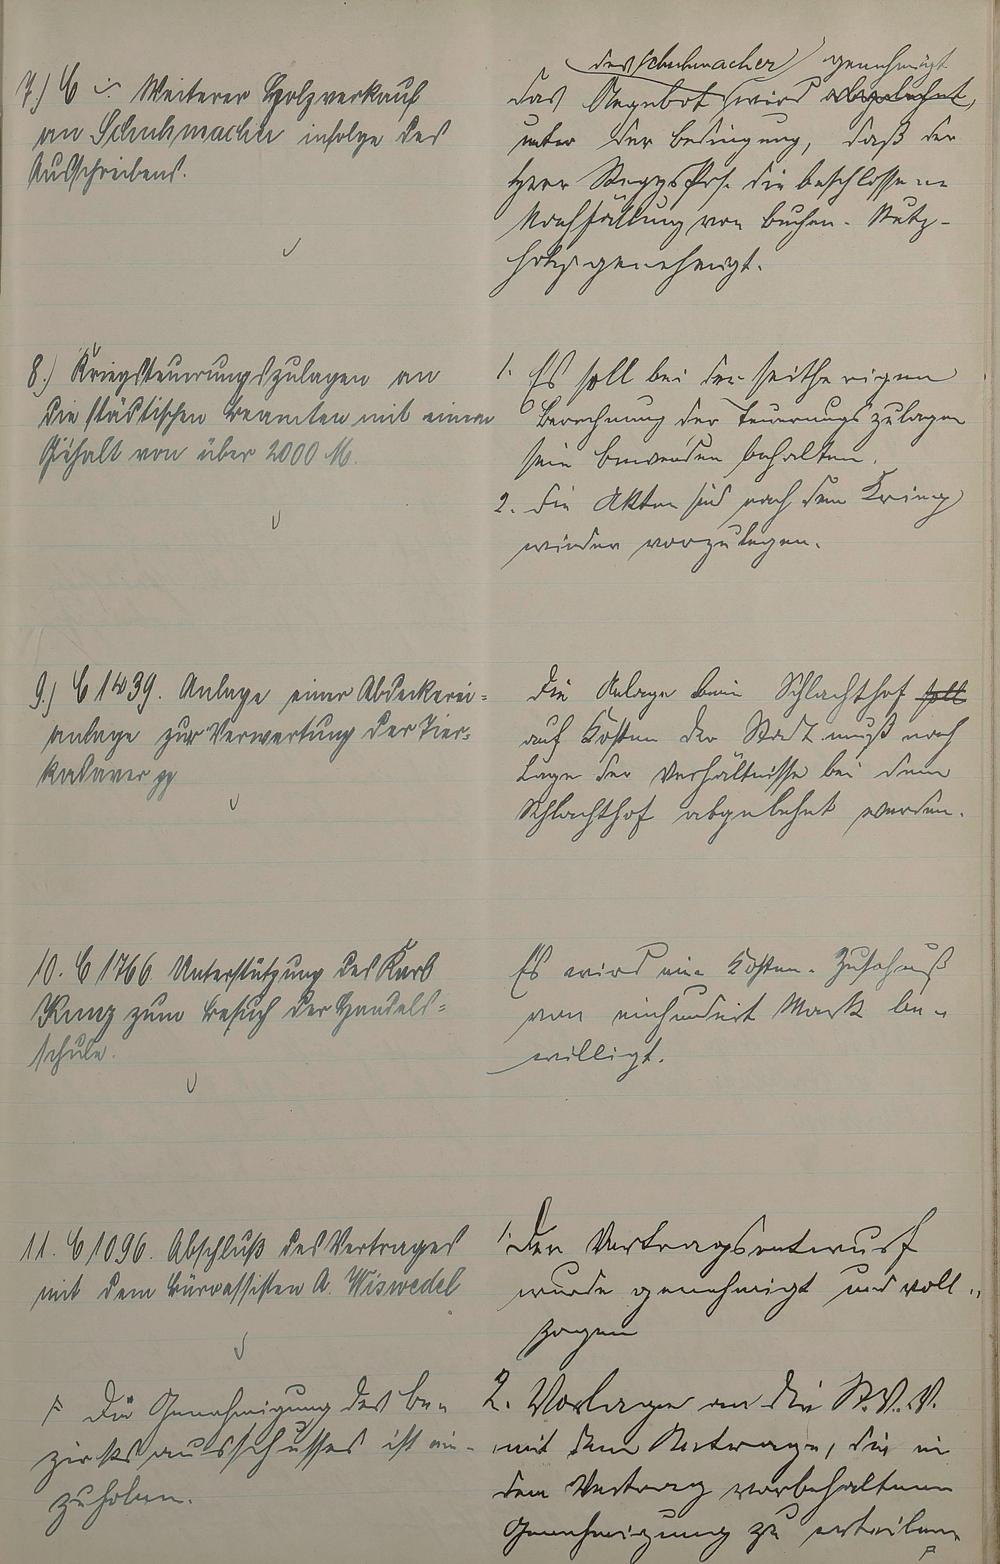 7.) C Weiterer Holzverkauf
an Schuhmacher infolge des
Ausschreibens.
des Schuhmacher genehmigt
Das Angebot wird abgelehnt,
unter der Bedingung, daß der
Herr die beschlossene
Nachfällung von Buchen-Nutz-
holz genehmigt.
8.) Kriegsteuerungszulagen an
die städtischen Beamten mit einem
Gehalt von über 2000 M.
1. Es soll bei der seitherigen
Berechnung der Teuerungszulagen
sein Bewenden behalten.
2. Die Akten sind nach dem Krieg
wieder vorzulegen.
9.) C 1439. Anlage einer Abdeckerei-
anlage zur Verwertung der Tier-
kadaver pp
Die Anlage beim Schlachthof soll
auf Kosten der Stadt muß nach
Lage der Verhältnisse bei dem
Schlachthof abgelehnt werden.
10. C 1766 Unterstützung des Karl
Kunz zum Besuch der Handels-
schule.
Es wird ein Kosten-Zuschuß
von einhundert Mark be-
willigt.
11. C 1096. Abschluß des Vertrages
mit dem Büroassisten A. Wiswedel
1. Der Vertragsentwurf
wurde genehmigt und voll-
zogen
2. Vorlage an die St.V.V.
mit dem Antrage, die in
dem Vertrag vorbehaltene
Genehmigung zu erteilen
F Die Genehmigung des Be-
zirksausschusses ist ein-
zuholen.